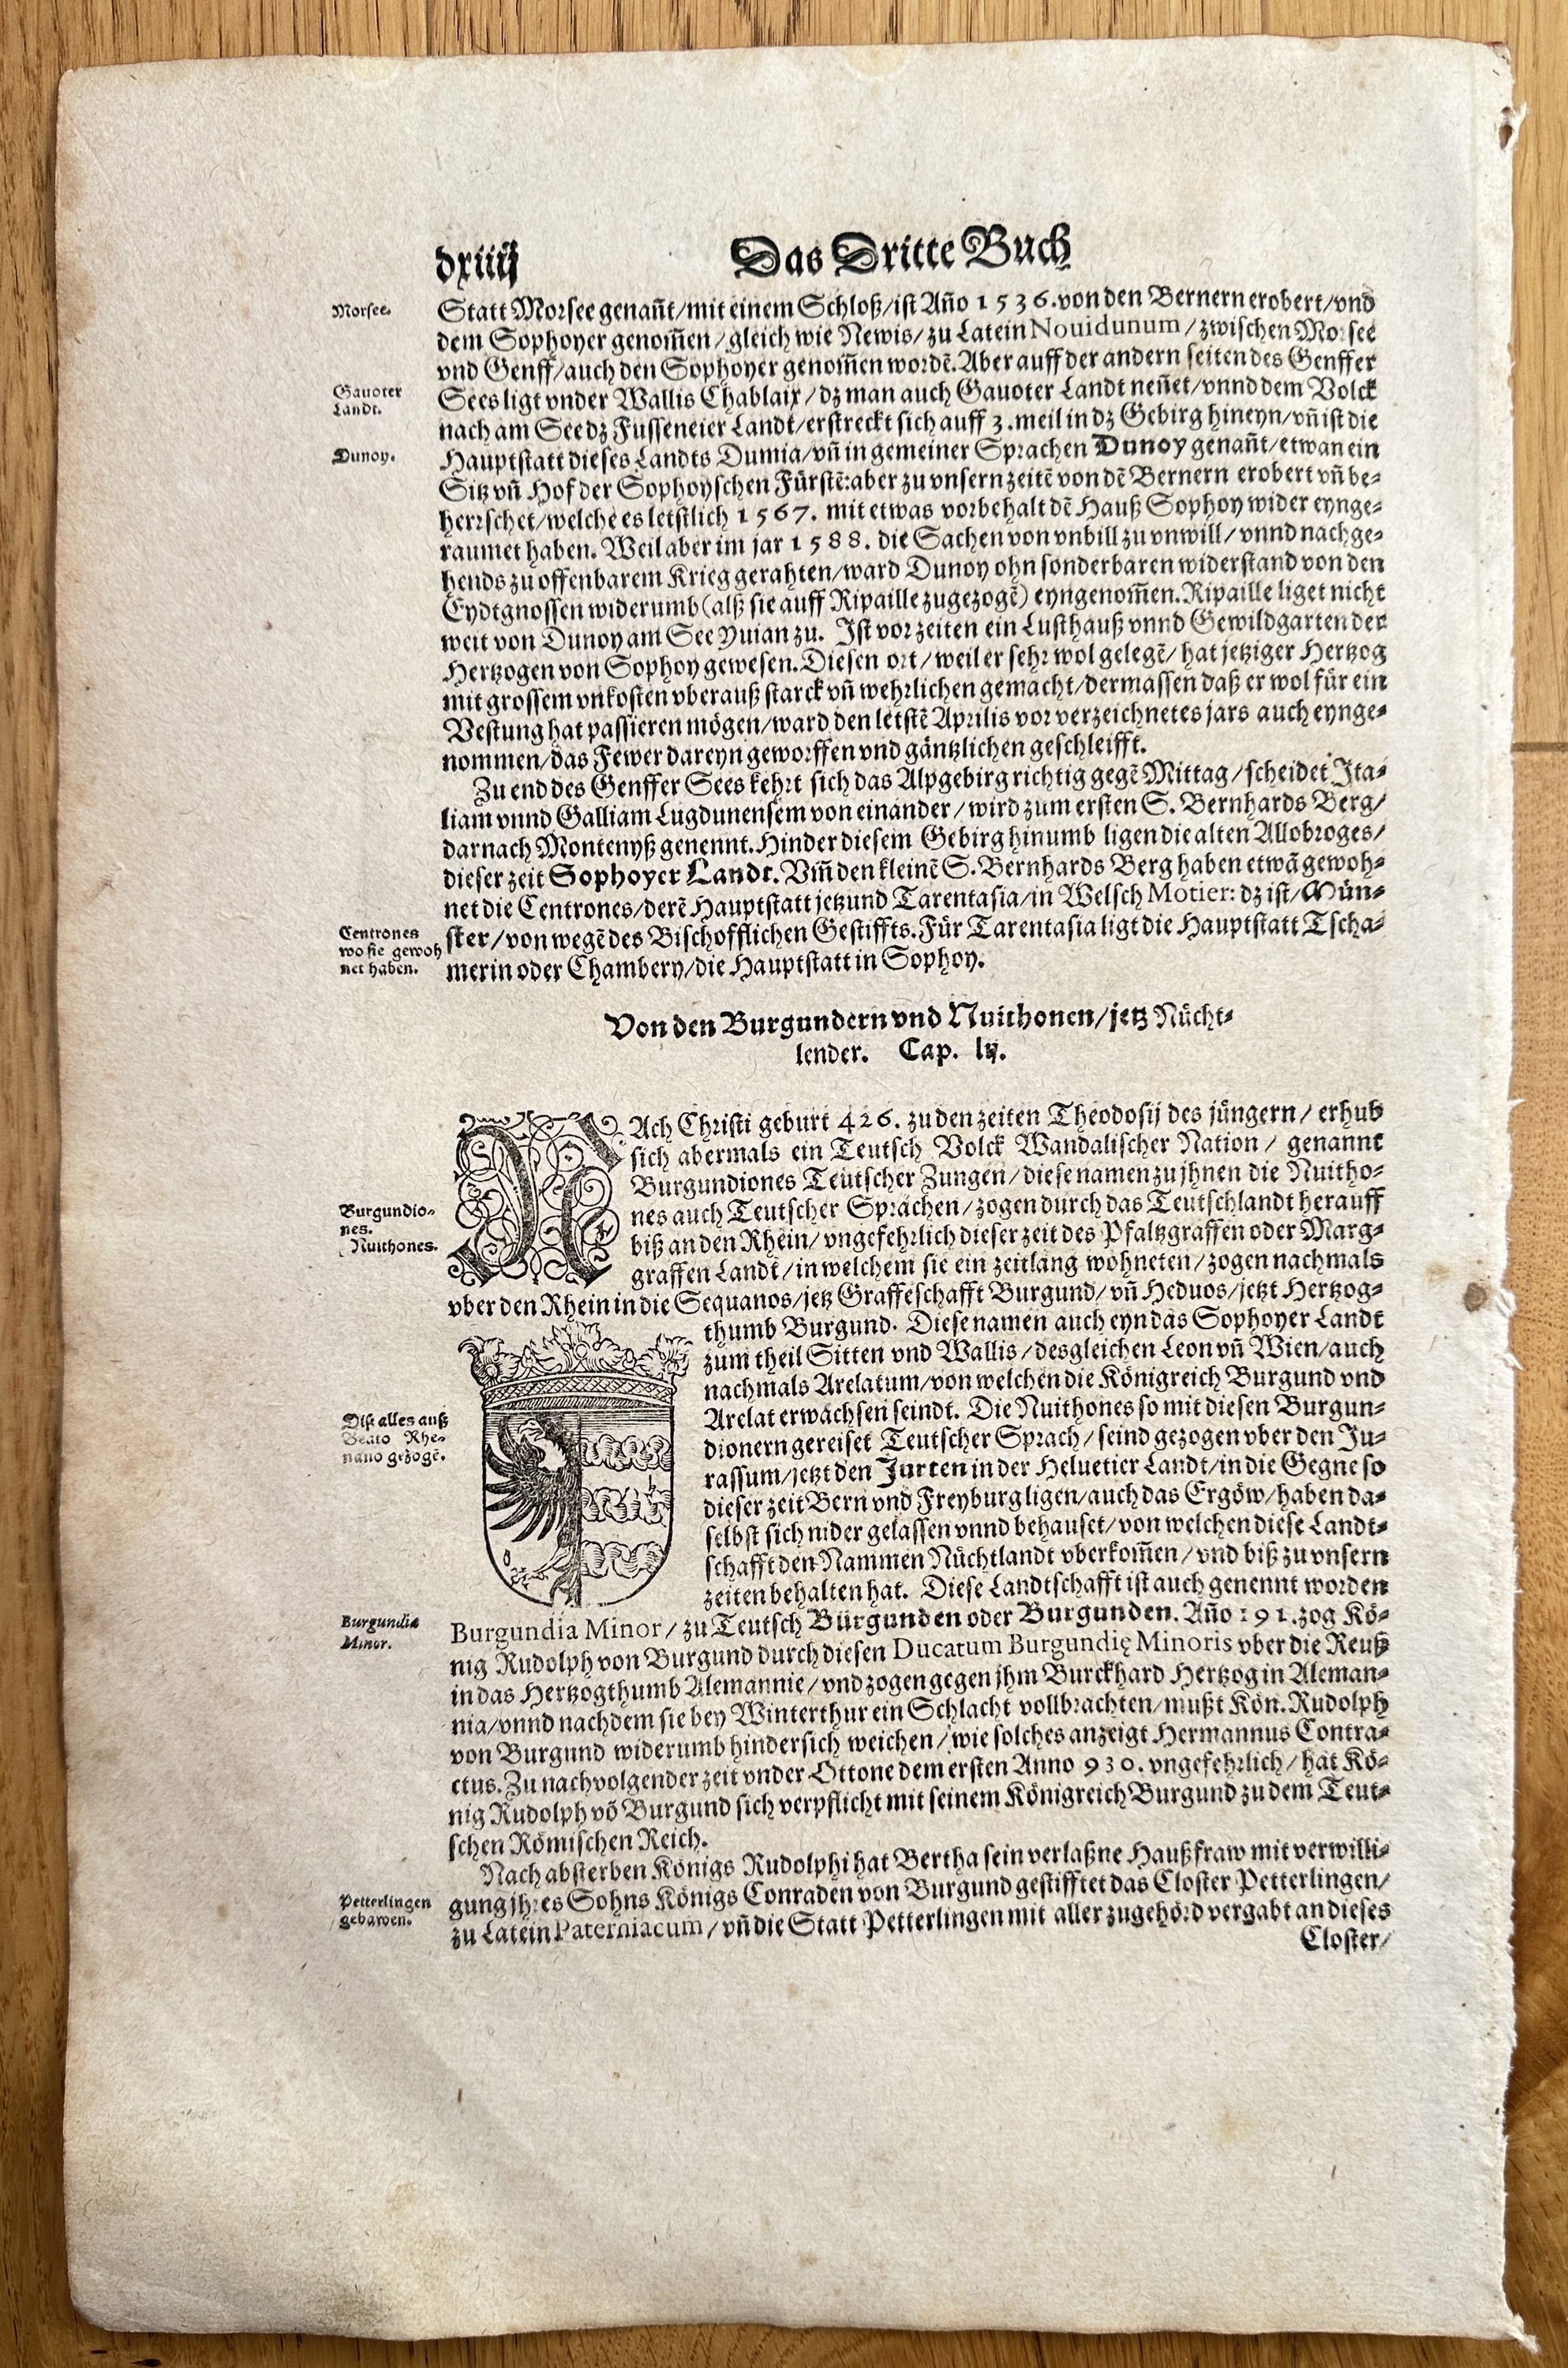 dxiiij
Das Dritte Buch
Morsee.
Statt Morsee genañt/mit einem Schloß/ist Año 1536. von den Bernern erobert/vnd
dem Sophoyer genom̃en/gleich wie Newis/zu Latein Nouidunum/zwischen Morsee
vnd Genff/auch den Sophoyer genom̃en wordẽ. Aber auff der andern seiten des Genffer
Gauoter
Landt.
Sees ligt vnder Wallis Chablaix/dz man auch Gauoter Landt neñet/vnnd dem Volck
nach am See dz Fusseneier Landt/erstreckt sich auff 3. meil in dz Gebirg hineyn/vñ ist die
Dunoy.
Hauptstatt dieses Landts Dumia/vñ in gemeiner Sprachen Dunoy genañt/etwan ein
Sitz vñ Hof der Sophoyschen Fürstẽ: aber zu vnsern zeitẽ von dẽ Bernern erobert vñ be-
herrschet/welche es letstlich 1567. mit etwas vorbehalt dẽ Hauß Sophoy wider eynge-
raumet haben. Weil aber im jar 1588. die Sachen von vnbill zu vnwill/vnnd nachge-
hends zu offenbarem Krieg gerahten/ward Dunoy ohn sonderbaren widerstand von den
Eydtgnossen widerumb (alß sie auff Ripaille zugezogẽ) eyngenom̃en. Ripaille liget nicht
weit von Dunoy am See Yuian zu. Ist vor zeiten ein Lusthauß vnnd Gewildgarten der
Hertzogen von Sophoy gewesen. Diesen ort/weil er sehr wol gelegẽ/hat jetziger Hertzog
mit grossem vnkosten vberauß starck vñ wehrlichen gemacht/dermassen daß er wol für ein
Vestung hat passieren mögen/ward den letstẽ Aprilis vor verzeichnetes jars auch eynge-
nommen/das Fewer dareyn geworffen vnd gäntzlichen geschleifft.
Zu end des Genffer Sees kehrt sich das Alpgebirg richtig gegẽ Mittag/scheidet Ita-
liam vnnd Galliam Lugdunensem von einander/wird zum ersten S. Bernhards Berg/
darnach Montenyß genennt. Hinder diesem Gebirg hinumb ligen die alten Allobroges/
dieser zeit Sophoyer Landt. Vm̃ den kleinẽ S. Bernhards Berg haben etwã gewoh-
net die Centrones/derẽ Hauptstatt jetzund Tarentasia/in Welsch Motier: dz ist/Mün-
Centrones
wo sie gewoh
net haben.
ster/von wegẽ des Bischofflichen Gestiffts. Für Tarentasia ligt die Hauptstatt Tscha-
merin oder Chambery/die Hauptstatt in Sophoy.
Von den Burgundern vnd Nuithonen/jetz Nücht-
lender. Cap. lij.
NAch Christi geburt 426. zu den zeiten Theodosij des jüngern/erhub
sich abermals ein Teutsch Volck Wandalischer Nation/genannt
Burgundiones Teutscher Zungen/diese namen zu jhnen die Nuitho-
Burgundio-
nes.
Nuithones.
nes auch Teutscher Sprachen/zogen durch das Teutschlandt herauff
biß an den Rhein/vngefehrlich dieser zeit des Pfaltzgraffen oder Marg-
graffen Landt/in welchem sie ein zeitlang wohneten/zogen nachmals
vber den Rhein in die Sequanos/jetz Graffeschafft Burgund/vñ Heduos/jetzt Hertzog-
thumb Burgund. Diese namen auch eyn das Sophoyer Landt
zum theil Sitten vnd Wallis/desgleichen Leon vñ Wien/auch
nachmals Arelatum/von welchen die Königreich Burgund vnd
Diß alles auß
Beato Rhe-
nano gezogẽ.
Arelat erwachsen seindt. Die Nuithones so mit diesen Burgun-
dionern gereiset Teutscher Sprach/seind gezogen vber den Ju-
rassum/jetzt den Jurten in der Heluetier Landt/in die Gegne so
dieser zeit Bern vnd Freyburg ligen/auch das Ergöw/haben da-
selbst sich nider gelassen vnnd behauset/von welchen diese Landt-
schafft den Nammen Nüchtlandt vberkom̃en/vnd biß zu vnsern
zeiten behalten hat. Diese Landtschafft ist auch genennt worden
Burgundia
Minor.
Burgundia Minor/zu Teutsch Bürgunden oder Burgunden. Año 191. zog Kö-
nig Rudolph von Burgund durch diesen Ducatum Burgundię Minoris vber die Reuß
in das Hertzogthumb Alemannie/vnd zogen gegen jhm Burckhard Hertzog in Aleman-
nia/vnnd nachdem sie bey Winterthur ein Schlacht vollbrachten/mußt Kön. Rudolph
von Burgund widerumb hindersich weichen/wie solches anzeigt Hermannus Contra-
ctus. Zu nachvolgender zeit vnder Ottone dem ersten Anno 930. vngefehrlich/hat Kö-
nig Rudolph võ Burgund sich verpflicht mit seinem Königreich Burgund zu dem Teut-
schen Römischen Reich.
Nach absterben Königs Rudolphi hat Bertha sein verlaßne Haußfraw mit verwilli-
Petterlingen
gebawen.
gung jhres Sohns Königs Conraden von Burgund gestifftet das Closter Petterlingen/
zu Latein Paterniacum/vñ die Statt Petterlingen mit aller zugehörd vergabt an dieses
Closter/